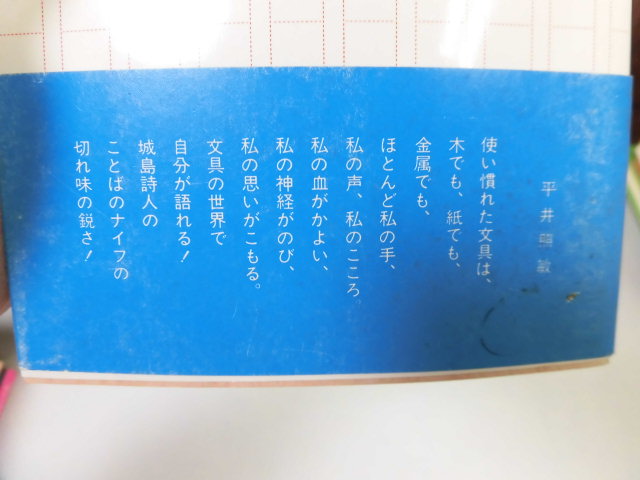 平井照敏
使い慣れた文具は、
木でも、紙でも、
金属でも、
ほとんど私の手、
私の声、私のこころ
私の血がかよい、
私の神経がのび、
私の思いがこもる。
文具の世界で
自分が語れる！
城島詩人の
ことばのナイフの
切れ味の鋭さ！